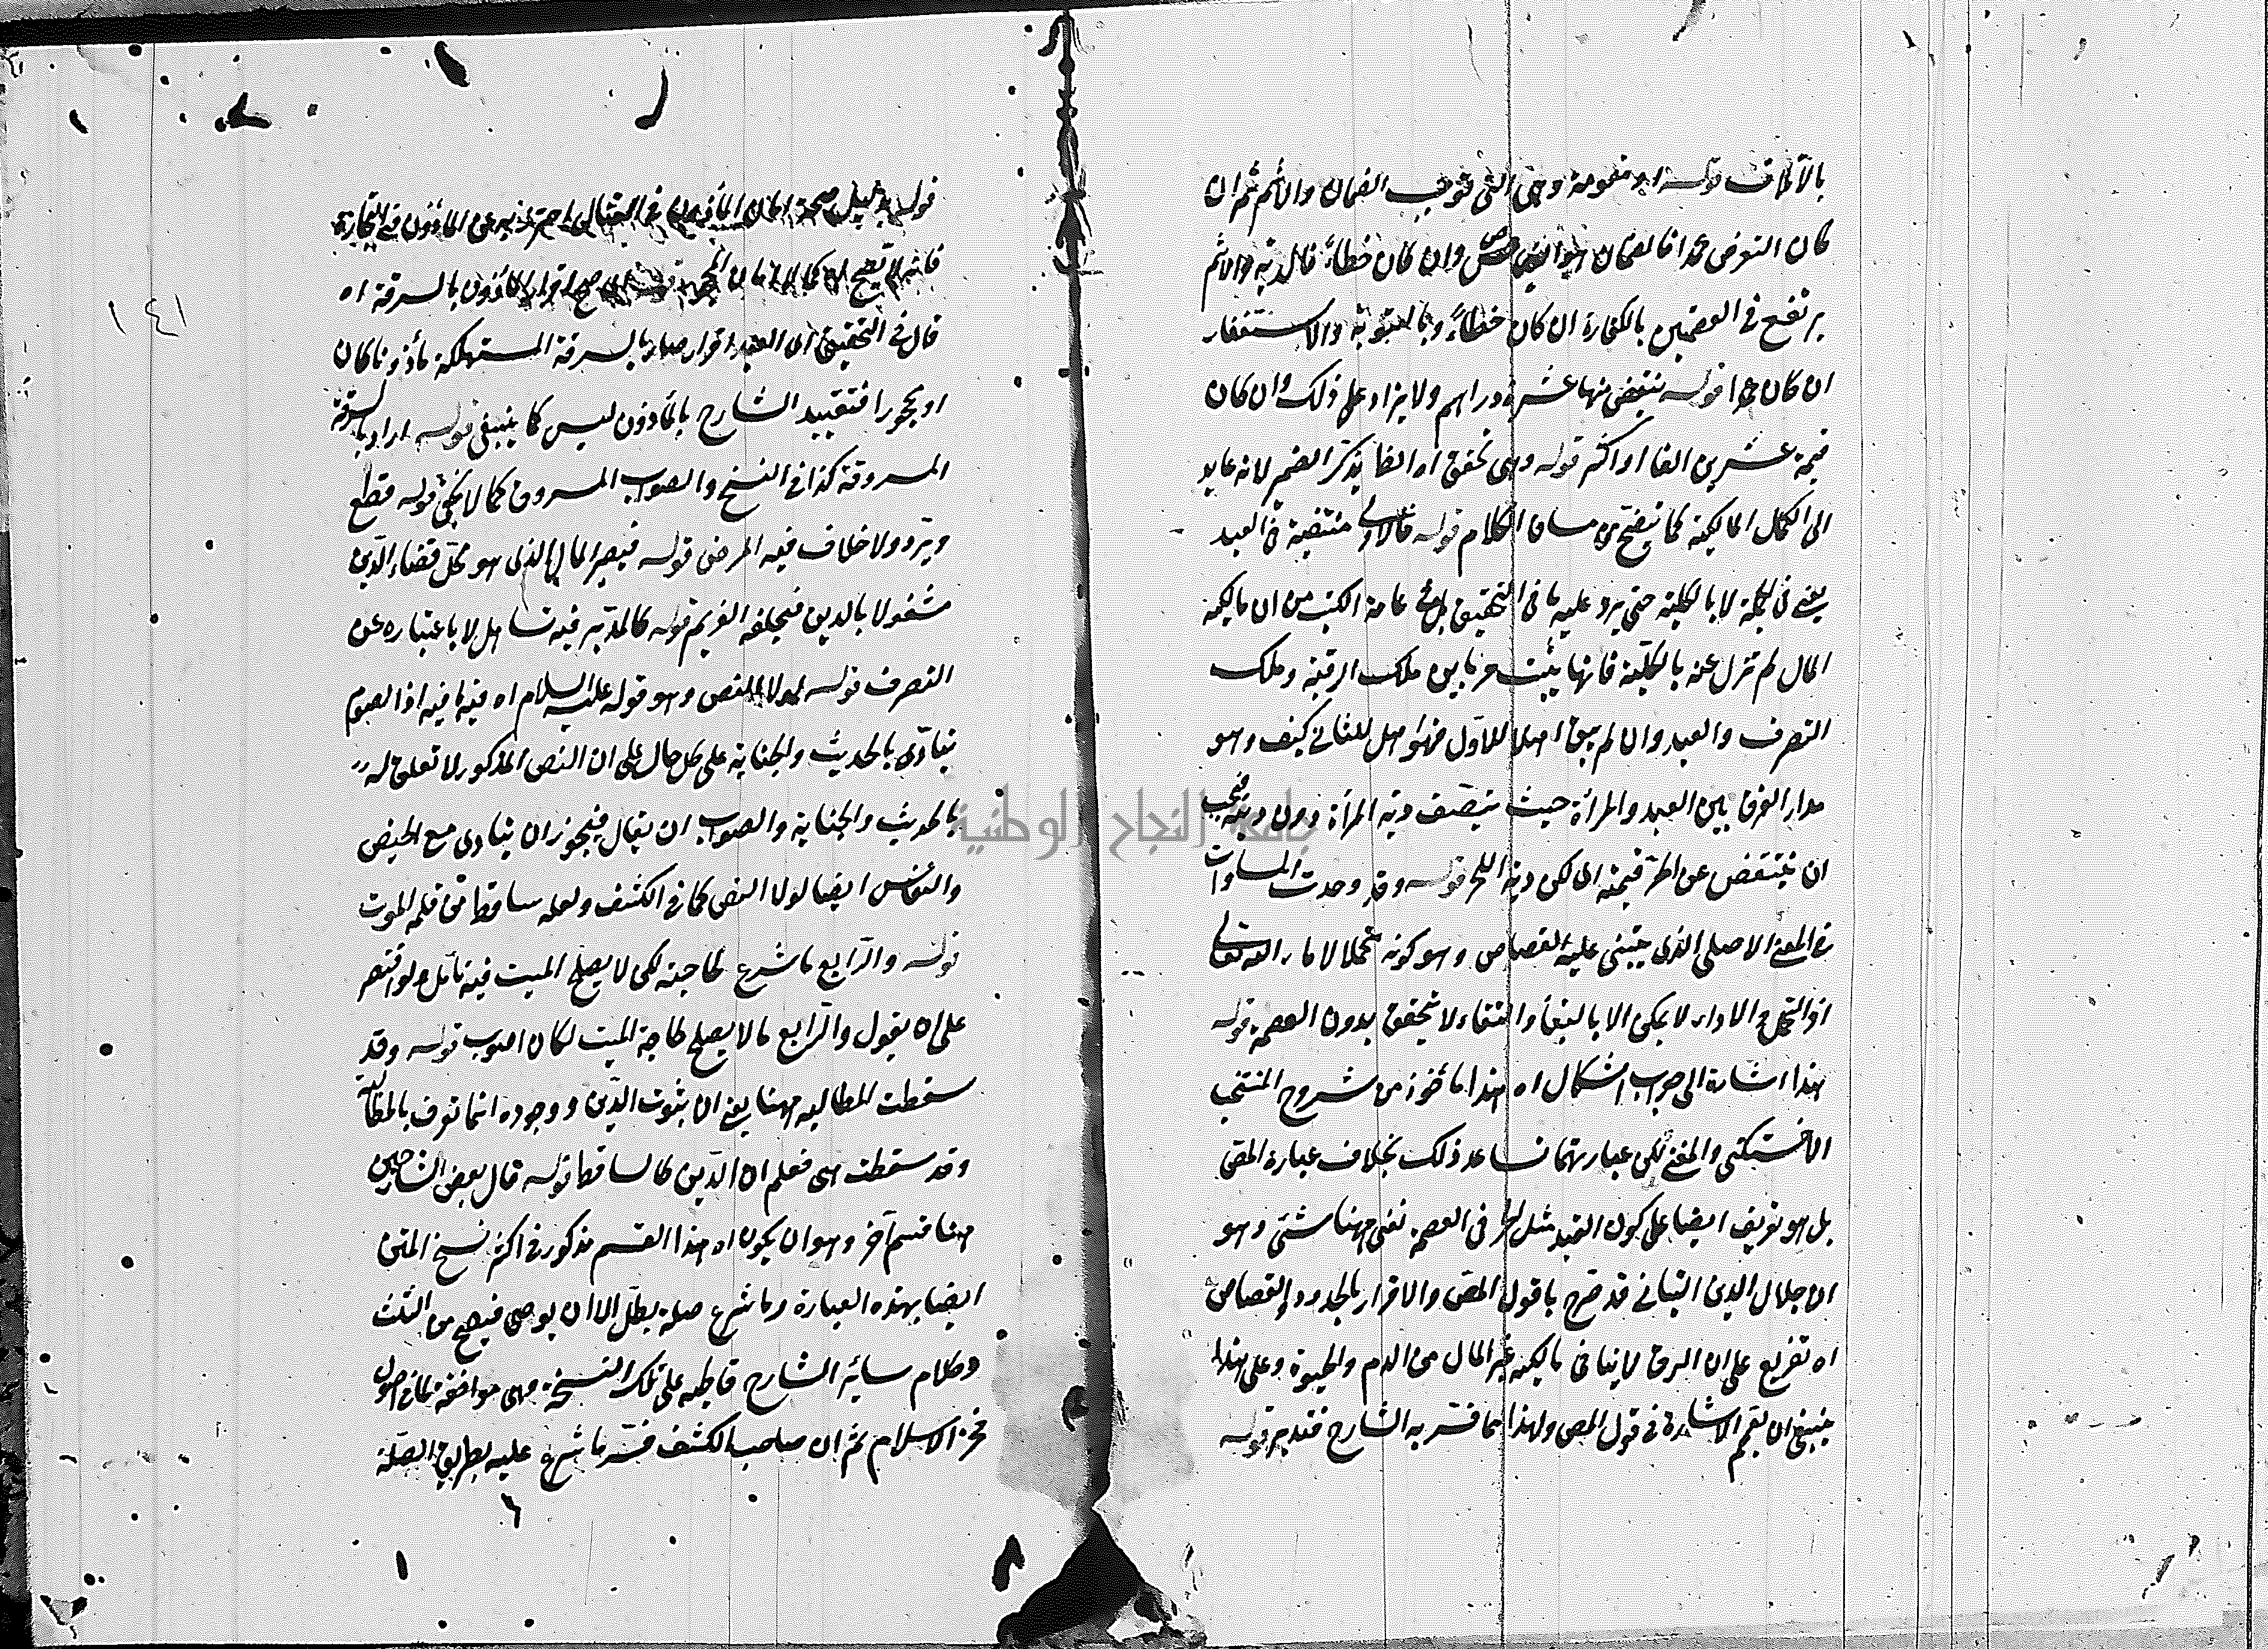 بالاتلاف قوله او مقومة وهى التى توجب الضمان والاثم ثم ان
كان التعرض عمدا فالضمان هو القصاص وان كان خطاءً فالدية والاثم
يرتفع فى العصمتين بالكفارة ان كان خطاءً وبالتوبة والاستغفار
ان كان عمدا قوله ينتقض منها عشرة دراهم ولا يزاد على ذلك وان كان
قيمة عشرين الفا او اكثر قوله وهى تحقق اه الظا يذكر الضمير لانه عايد
الى الكمال المالكية كما يتضح من مساق الكلام قوله فالاولى منتفية فى العبد
يعنى فى الجملة لا بالكلية حتى يرد عليه ما فى التحقيق بل فى عامة الكتب من ان مالكية
المال لم تزل عنه بالكلية فانها تثبت مرتبا بين ملك الرقبة وملك
التصرف والعبد وان لم يبق اهلا للاول فهو اهل للثانى كيف وهو
مدار الفرق بين العبد والمرأة حيث ينصف دية المرأة دون ديته فيجب
ان ينتقض عن الحر قيمته الى لكن دية الحر قوله وقد وجدت المساوات
فى المعنى الاصلى الذى يبتنى عليه القصاص وهو كونه متحملا لامانة الله تعالى
اذ التحمل والاداء لا يمكن الا بالبقاء والبقاء لا يتحقق بدون العصمة قوله
هذا اشارة الى جواب اشكال اه هذا مأخوذ من شروح المنتخب
الاخسيكتى والمغنى لكن عبارتهما تساعد ذلك بخلاف عبارة المص
بل هو تعريف ايضا على كون العبد مثل الحر فى العصمة بقى ههنا شئ وهو
ان جلال الدين التبانى قد صرح باقول المص والاقرار بالحدود والقصاص
اه تفريع على ان الرق لا ينافى مالكية غير المال من الدم والحيوة وعلى هذا
ينبغى ان يقع الاشارة فى قول المص ولهذا بما فسر به الشارح فتدبر قوله
١٤١
قوله بدليل صحة امان المأذون فى القتال احترز به عن المأذون فى التجارة
فانه لا يصح امانه كما لا امان المحجور قوله صح اقرار المأذون بالسرقة اه
قال فى التحقيق ان العبد اقرار صار بالسرقة المستهلكة مأذونا كان
او محجورا فتقييد الشارح بالمأذون ليس كما ينبغى قوله اراد بالسرقة
المسروقة كذا فى النسخ والصواب المسروق كما لا يخفى قوله قطع
ويرد ولا خلاف فيه المرض قوله فيصير المال الذى هو محل قضاء الدين
مشغولا بالدين فيخلفه الغريم قوله كالمدبر فيه تساهل لا باعتباره عن
التصرف قوله لولا النص وهو قوله عليه السلام اه فيه ما فيه اذ الصوم
يتأدى بالحديث والجنابة على كل حال على ان النص المذكور لا تعلق له
بالحديث والجنابة والصواب ان يقال فيجوز ان يتادى مع الحيض
والنفاس ايضا لولا النص كما فى الكشف ولعله ساقط من قلمه الموت
قوله والرابع ما شرع لحاجته لكن لا يصلح الميت فيه تأمل ولو اقتصر
على ان يقول والرابع ما لا يصلح لحاجة الميت لكان اصوب قوله وقد
سقطت المطالبه ههنا يعنى ان ثبوت الدين ووجوده انما تعرف بالمطالبة
وقد سقطت هى فعلم ان الدين كالساقط قوله قال بعض الشارحين
ههنا قسم آخر وهو ان يكون اه هذا القسم مذكور فى اكثر نسخ المتن
ايضا بهذه العبارة وما شرع صلة بطل الا ان يوصى فيصح من الثلث
وكلام سائر الشارح قاطبه على تلك النسخة وهى موافقة لما فى اصول
فخر الاسلام ثم ان صاحب الكشف فسر ما شرع عليه بطريق الصلة